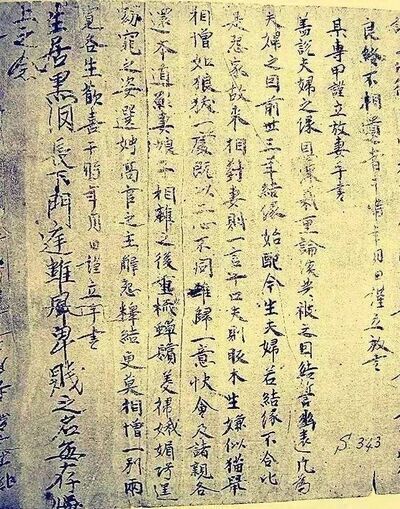 于時年月日謹立放書
某專甲謹立放妻手書
盖說夫婦之緣恩深義重論談共被之因結誓幽遠凡為
夫婦之因前世三年結緣始配今生夫婦若結緣不合比
是怨家故來相對妻則一言十口夫則販木生嫌似猫鼠
相憎如狼羖一處既以二心不同難歸一意快會及諸親各
還本道願妻娘子相離之後重梳蟬鬢美掃娥媚巧逞
窈窕之姿選娉高官之主解怨釋結更莫相憎一別兩
寬各生歡喜于時年月日謹立手書
生居黑洞長下門卑賤之名無存
上之念
S.343